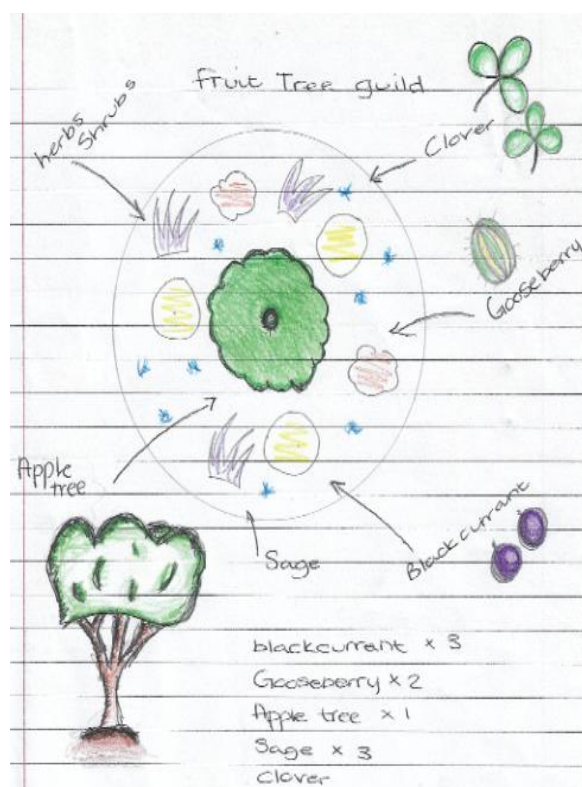 fruit Tree guild
herbs
Shrubs
Clover
Gooseberry
Apple
tree
Sage
Blackcurrant
blackcurrant x 3
Gooseberry x 2
Apple tree x 1
Sage x 3
Clover